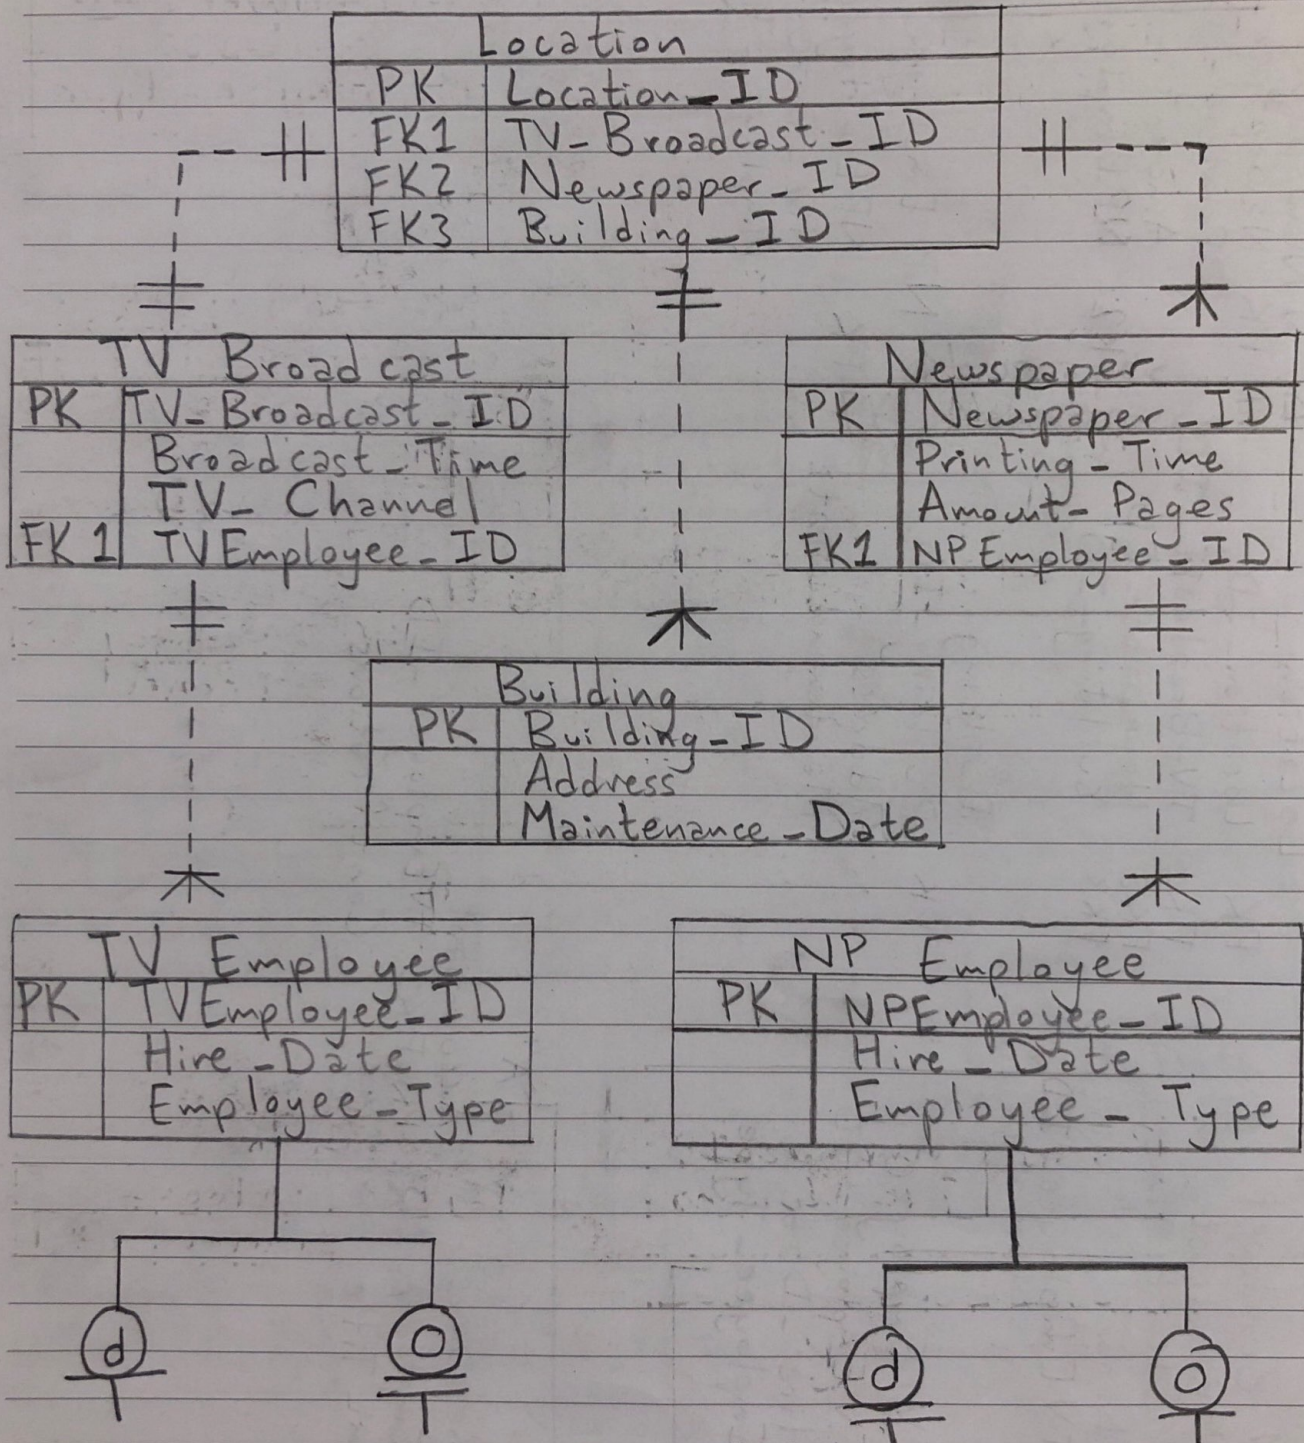 Location
PK Location_ID
FK1 TV_Broadcast_ID
FK2 Newspaper_ID
FK3 Building_ID
TV Broadcast
PK TV_Broadcast_ID
Broadcast_Time
TV_Channel
FK1 TVEmployee_ID
Newspaper
PK Newspaper_ID
Printing_Time
Amount_Pages
FK1 NPEmployee_ID
Building
PK Building_ID
Address
Maintenance_Date
TV Employee
PK TVEmployee_ID
Hire_Date
Employee_Type
NP Employee
PK NPEmployee_ID
Hire_Date
Employee_Type
d
o
d
o